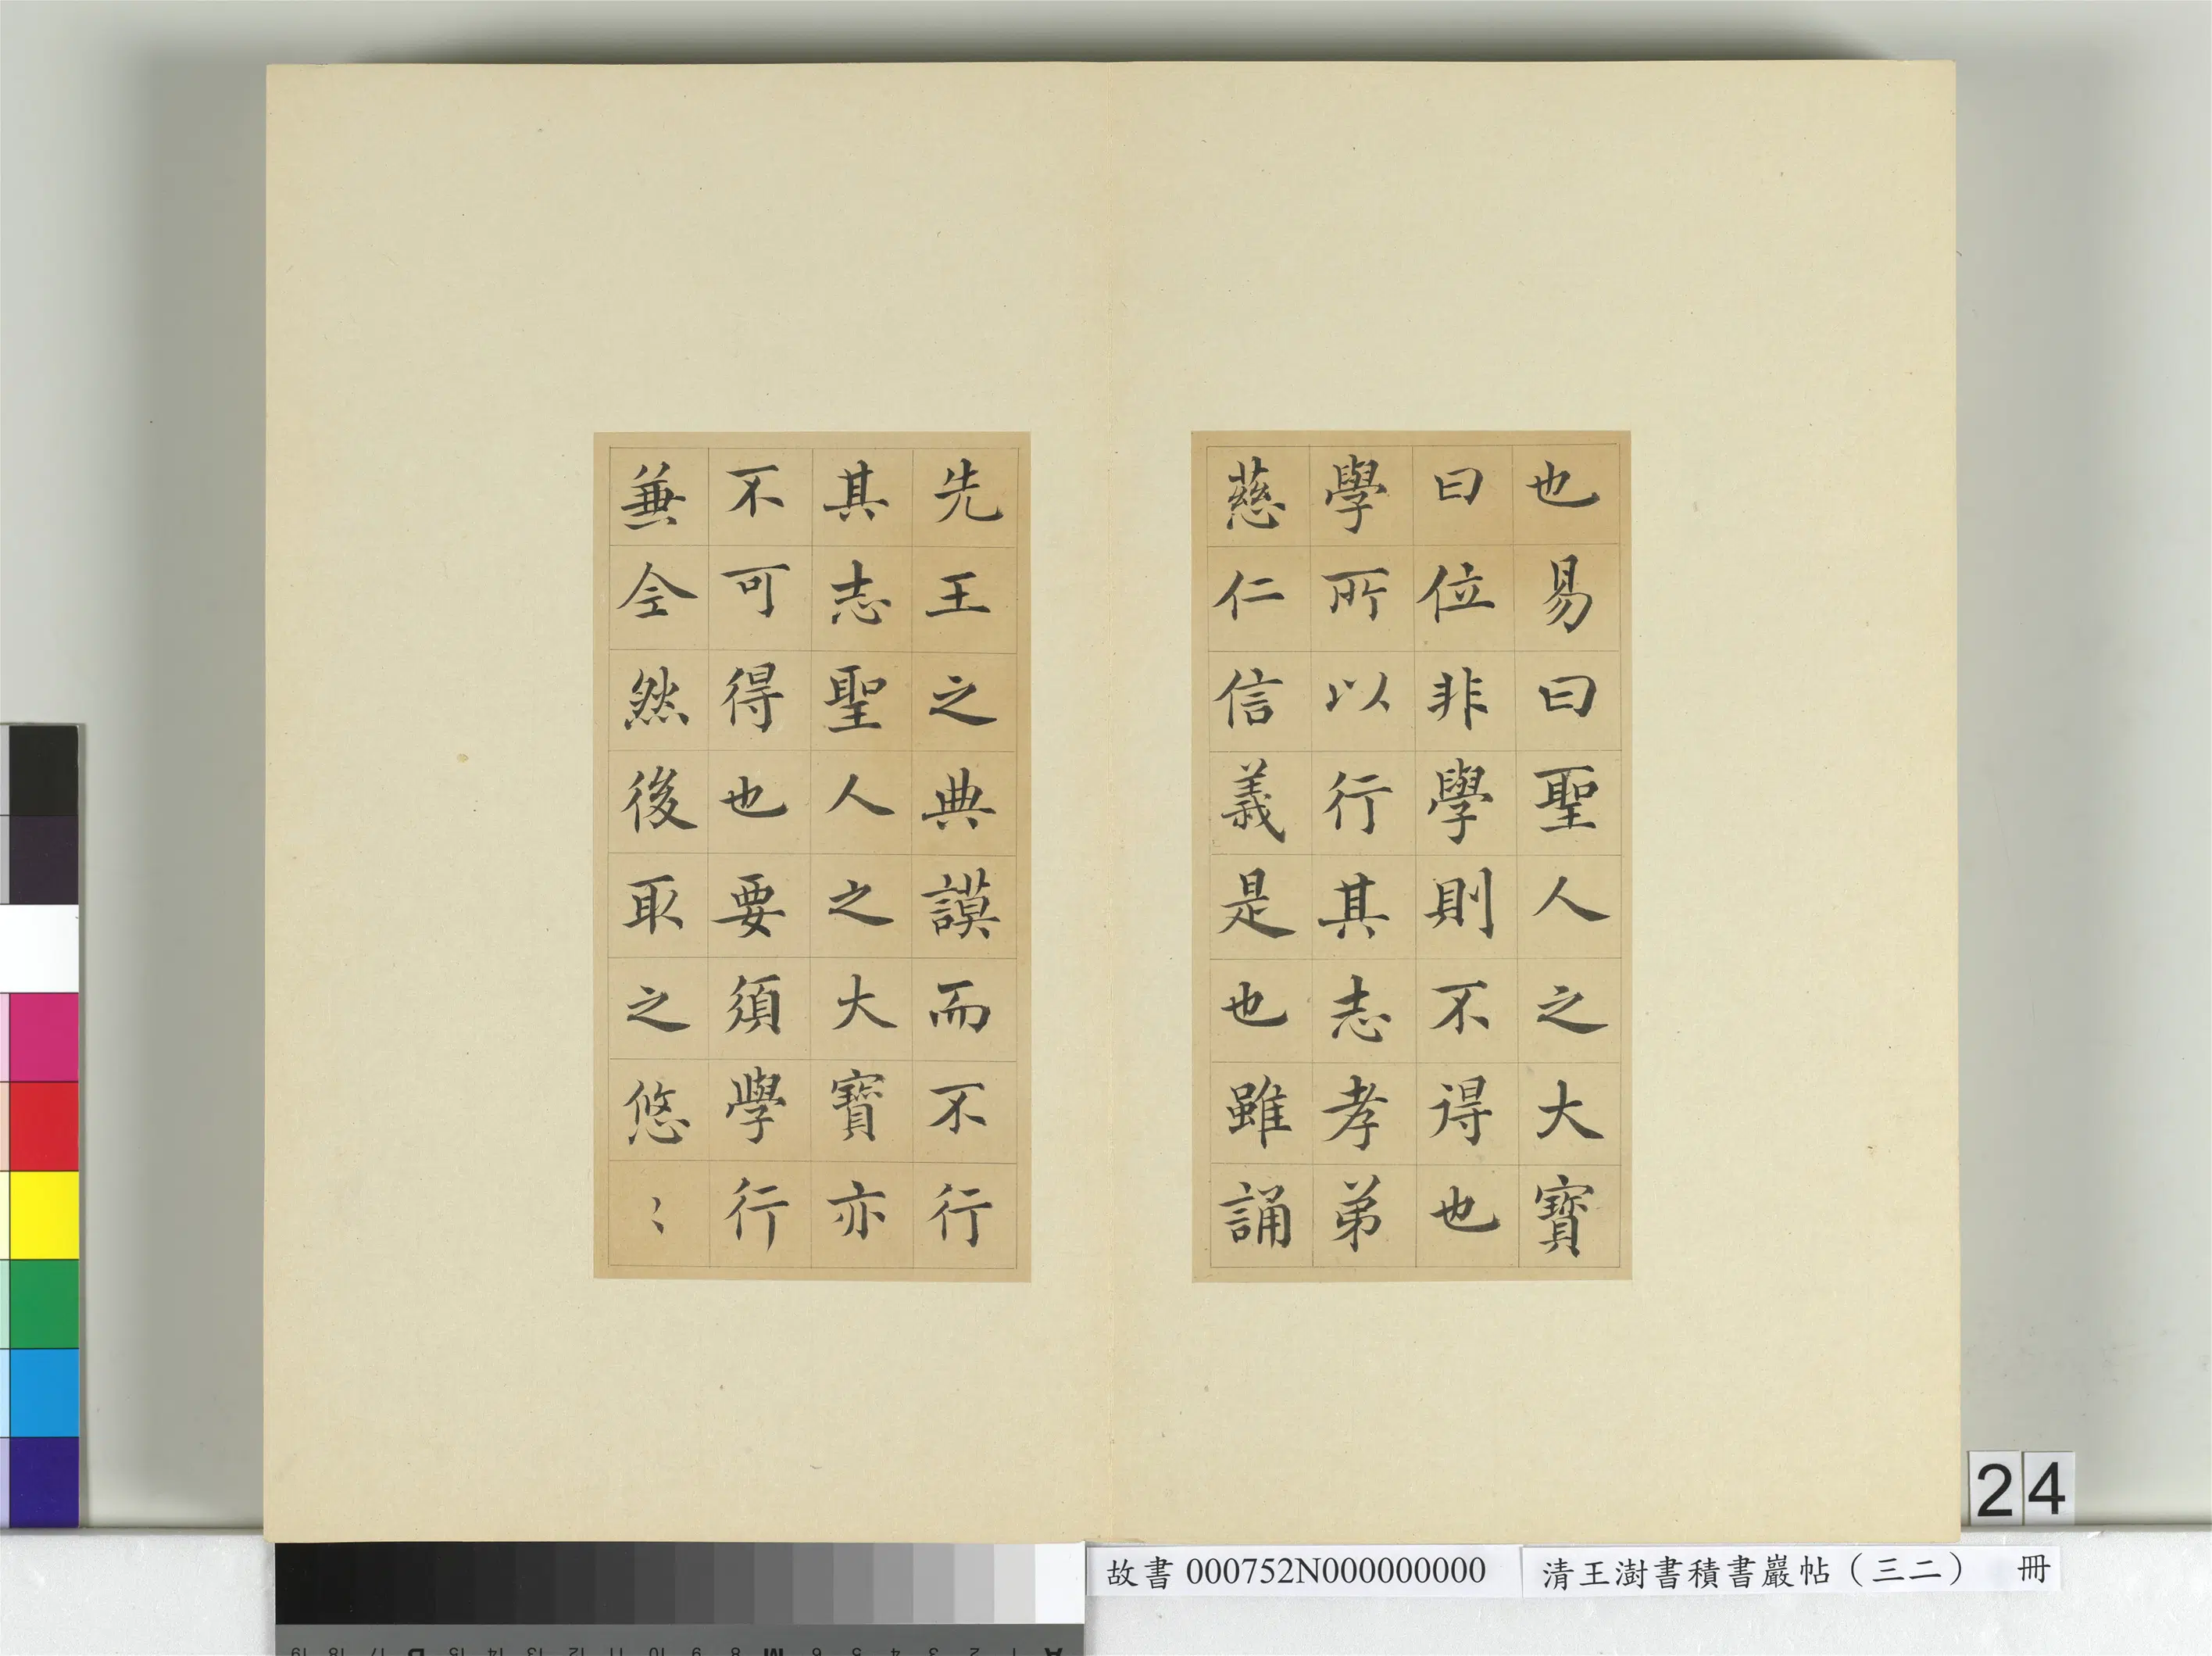 也易曰聖人之大寶
曰位非學則不得也
學所以行其志孝弟
慈仁信義是也雖誦
先王之典謨而不行
其志聖人之大寶亦
不可得也要須學行
兼全然後取之悠〻
24
故書 000752N000000000
清王澍書積書巖帖（三二） 冊
A 1 2 3 4 5 6 M 8 9 10 11 12 13 14 15 B 17 18 19